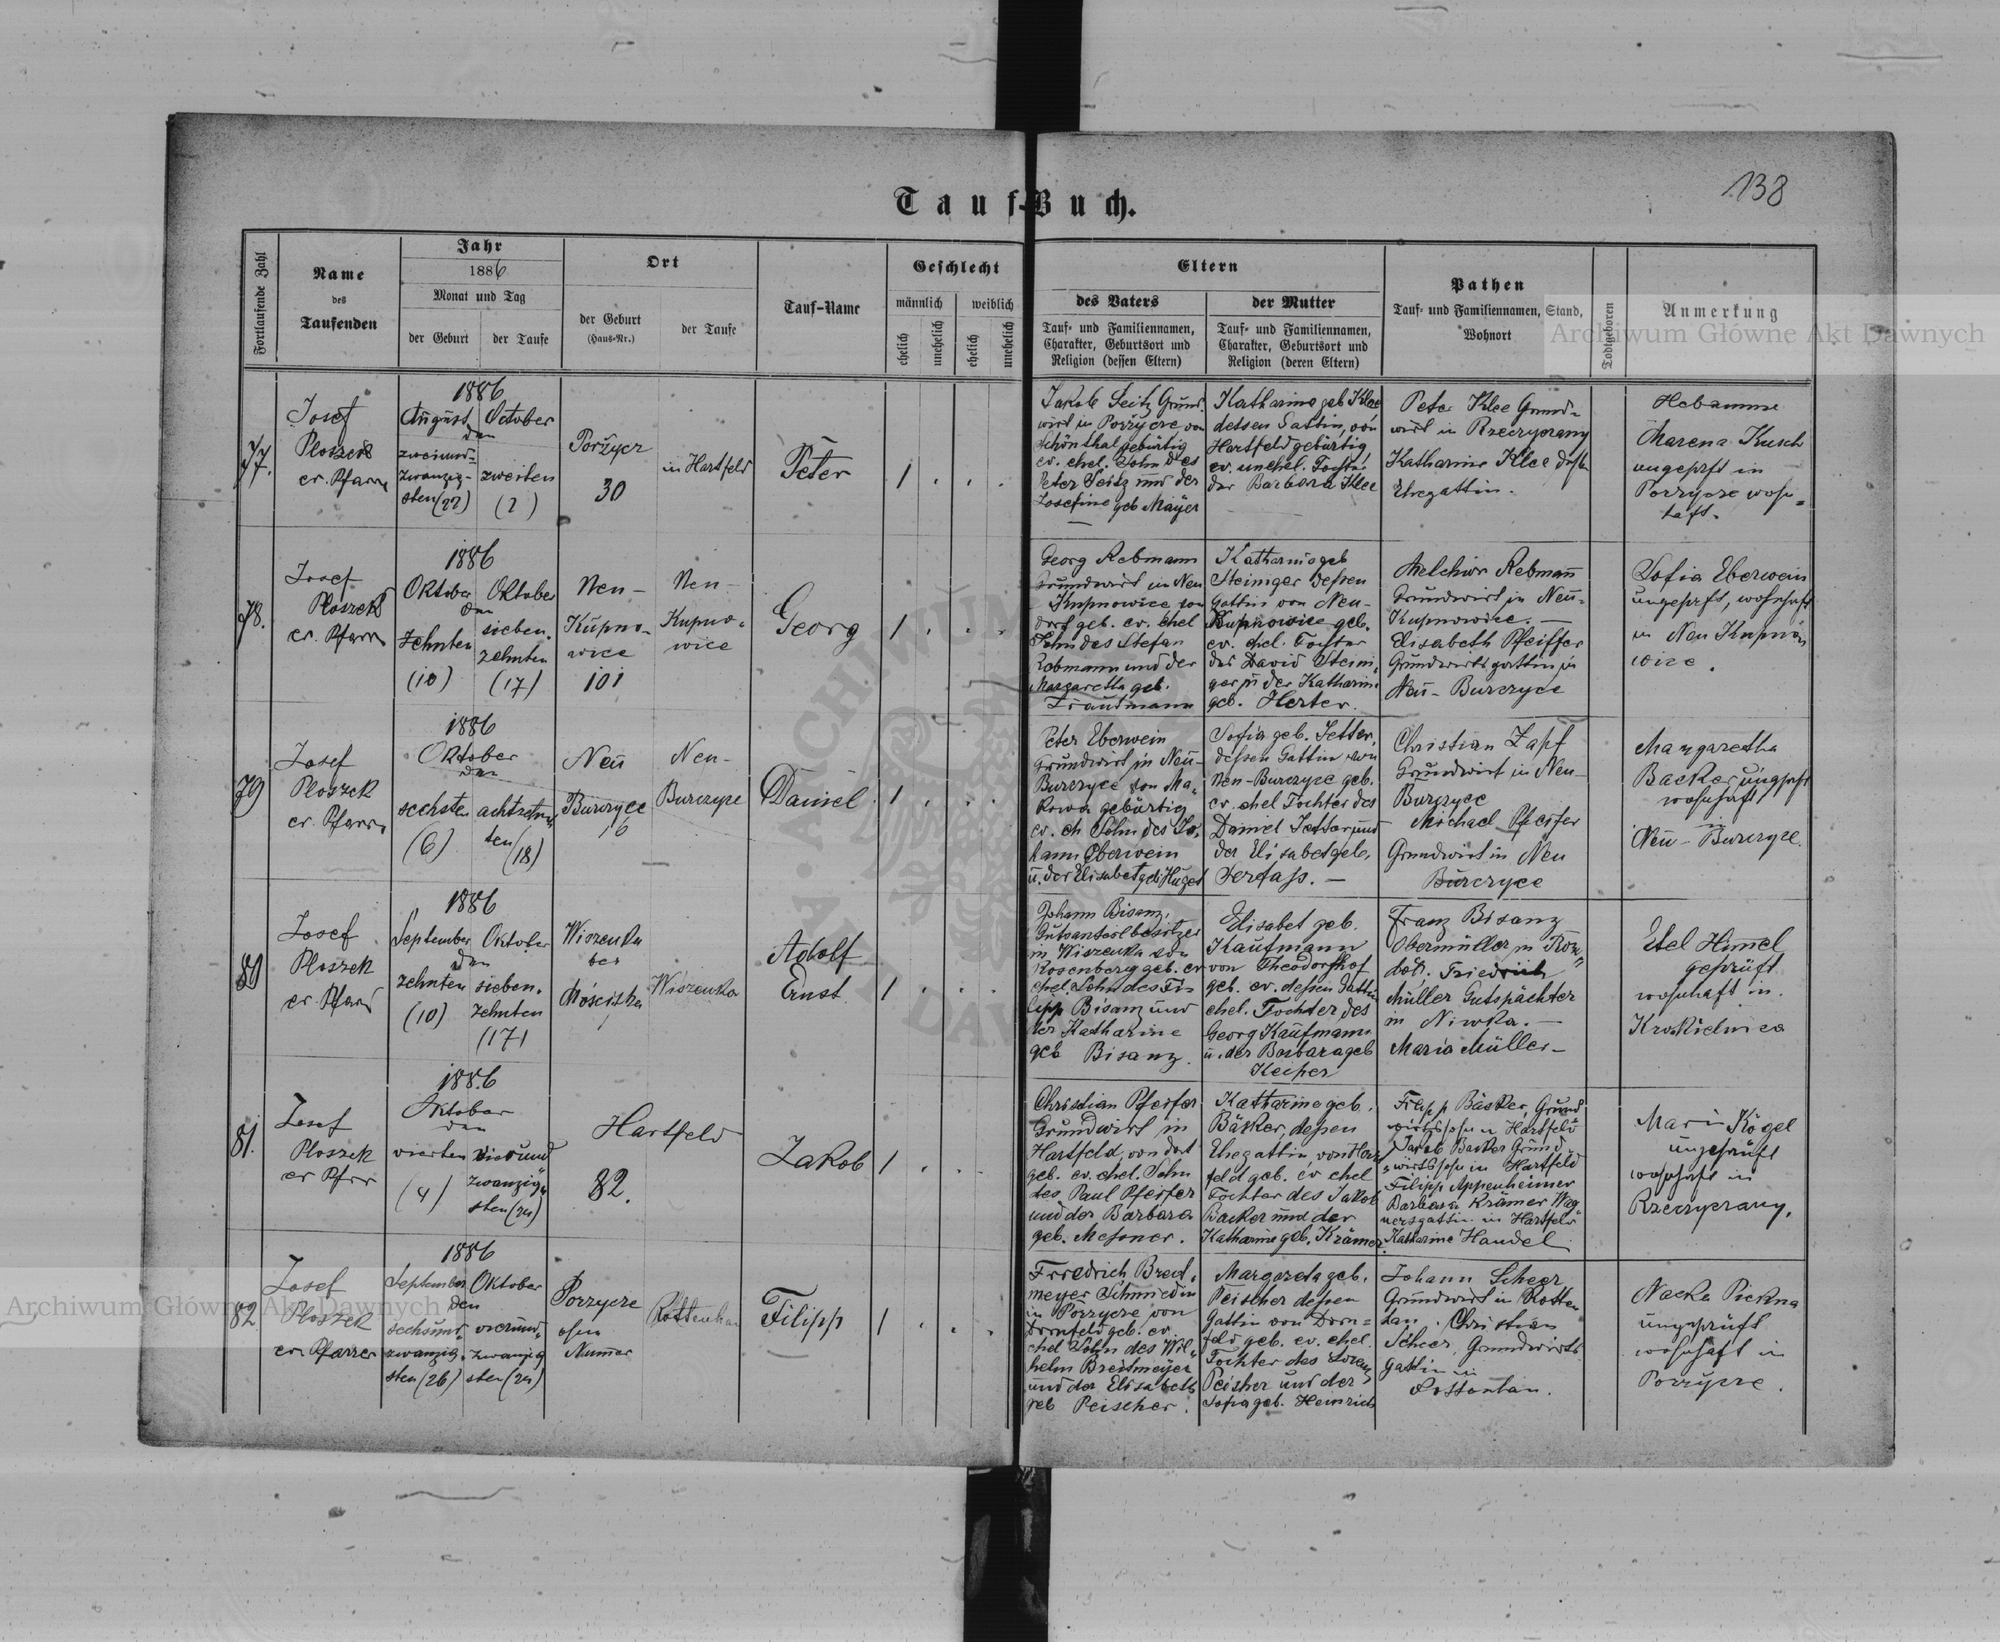 138
Tauf-Buch.
Fortlaufende Zahl
Name
des
Taufenden
Jahr
1886
Monat und Tag
der Geburt
der Taufe
Ort
der Geburt
(Haus-Nr.)
der Taufe
Tauf-Name
Geschlecht
männlich
weiblich
ehelich
unehelich
ehelich
unehelich
Eltern
des Vaters
Tauf- und Familiennamen,
Charakter, Geburtsort und
Religion (dessen Eltern)
der Mutter
Tauf- und Familiennamen,
Charakter, Geburtsort und
Religion (deren Eltern)
Pathen
Tauf- und Familiennamen, Stand,
Wohnort
Todtgeboren
Anmerkung
Archiwum Główne Akt Dawnych
77.
Josef
Ploszek
ev. Pfarrer
1886
August
October
den
zweiund-
zwanzig-
sten (22)
zweiten
(2)
Porzycz
30
in Hartfeld
Peter
1
Jakob Seitz Grund-
wirt in Porzycze, von
Schönthal gebürtig
ev. ehel. Sohn des
Peter Seitz und der
Josefine geb Mayer
Katharina geb Klee
dessen Gattin, von
Hartfeld gebürtig
ev. unehel. Tochter
der Barbara Klee
Peter Klee Grund-
wirt in Rzeczyczany
Katharine Klee dess.
Ehegattin.
Hebamme
Marena Kusch
ungeprft in
Porzycze wohn-
haft.
78.
Josef
Ploszek
ev. Pfarrer
1886
Oktober
Oktober
den
zehnten
(10)
sieben-
zehnten
(17)
Neu-
Kupno-
wice
101
Neu-
Kupno-
wice
Georg
1
Georg Rebmann
Grundwirt in Neu
Kupnowice von
dort geb. ev. ehel
Sohn des Stefan
Rebmann und der
Margaretha geb.
Trautmann
Katharina geb
Steiniger dessen
Gattin von Neu-
Kupnowice geb.
ev. ehel. Tochter
des David Steini-
ger u der Katharina
geb. Herter.
Melchior Rebmann
Grundwirt in Neu-
Kupnowice.
Elisabeth Pfeiffer
Grundwirtsgattin in
Neu-Burczyce
Sofia Eberwein
ungeprft, wohnhaft
in Neu Kupno-
wice.
79
Josef
Ploszek
ev. Pfarrer
1886
Oktober
den
sechsten
(6)
achtzehn-
ten (18)
Neu
Burczyce
16
Neu-
Burczyce
Daniel
1
Peter Eberwein
Grundwirt in Neu-
Burczyce von Ma-
kowa gebürtig
ev. eh Sohn des Jo-
hann Eberwein
u. der Elisabet geb Hugel
Sofia geb. Jetter,
dessen Gattin von
Neu-Burczyce geb.
ev. ehel Tochter des
Daniel Jetter und
der Elisabet geb.
Christian Zapf
Grundwirt in Neu-
Burczyce
Michael Pfeifer
Grundwirt in Neu
Burczyce
Margaretha
Backer ungeprft
wohnhaft
in
Neu-Burczyce.
80
Josef
Ploszek
ev. Pfarr
1886
September
Oktober
den
zehnten
(10)
sieben-
zehnten
(17)
Wiszenka
bei
Mościska
Wiszenka
Adolf
Ernst
1
Johann Bisanz,
Gutsanteilbesitzer
in Wiszenka von
Rosenberg geb. ev
ehel. Sohn des Fi-
lipp Bisanz und
der Katharine
geb Bisanz.
Elisabet geb.
Kaufmann
von Theodorshof
geb. ev. dessen Gattin
ehel. Tochter des
Georg Kaufmann
u. der Barbara geb
Keiper
Franz Bisanz
Obermüller in
Friedrich
Müller Gutspächter
in Niwka.
Maria Müller-
Etel Himel
geprüft
wohnhaft in.
Krukienica
81.
Josef
Ploszek
ev Pfrr
1886
Oktober
den
vierten
(4)
vierund
zwanzig-
sten (24)
Hartfeld
82.
Jakob
1
Christian Pfeifer
Grundwirt in
Hartfeld, von dort
geb. ev. ehel. Sohn
des Paul Pfeifer
und der Barbara
geb. Messner.
Katharine geb.
Bäcker, dessen
Ehegattin von Hart-
feld geb. ev ehel
Tochter des Jakob
Backer und der
Katharine geb. Krämer.
Filipp Bäcker, Grund-
wirtssohn in Hartfeld
Jakob Backer Grund-
wirtssohn in Hartfeld
Filipp Appenheimer
Barbara Krämer Wag-
nersgattin in Hartfeld
Katharine Handel
Marie Kögel
ungeprüft
wohnhaft in
Rzeczyczany.
82.
Josef
Ploszek
ev. Pfarrer
1886
September
Oktober
den
sechsund-
zwanzig-
sten (26)
vierund-
zwanzig
sten (24)
Porzycze
ohne
Numer
Rottenhan
Filipp
1
Friedrich Breit-
meyer Schmied in
in Porzycze von
Dornfeld geb. ev.
ehel Sohn des Wil-
helm Breitmeyer
und der Elisabeth
geb Peischer.
Margareta geb.
Peischer dessen
Gattin von Dorn-
feld geb. ev. ehel.
Tochter des Lorenz
Peischer und der
Sofia geb. Heinrich
Johann Scheer
Grundwirt in Rotten-
han. Christian
Scheer, Grundwirts-
gattin in
Rottenhan.
Nacka Piekna
ungeprüft
wohnhaft in
Porzycze.
Archiwum Główne Akt Dawnych